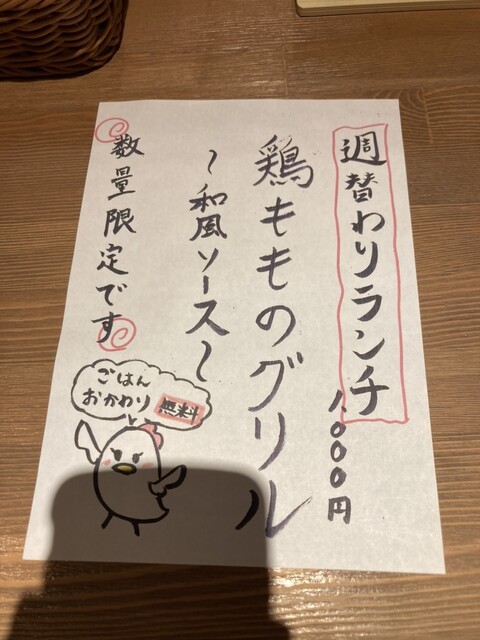 週替わりランチ
1,000円
鶏もものグリル
～和風ソース～
数量限定です
ごはん
おかわり 無料